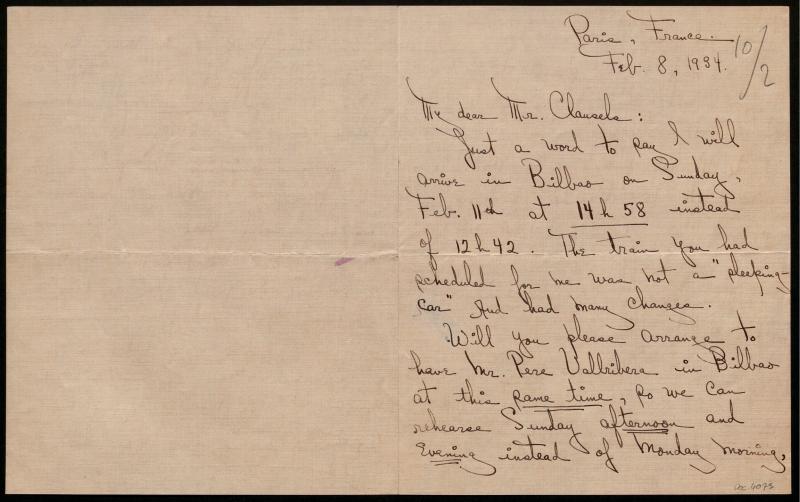 Paris, France.
Feb. 8, 1934.
10/2
My dear Mr. Clausels:
Just a word to say I will
arrive in Bilbao on Sunday,
Feb. 11th at 14 h 58 instead
of 12 h 42. The train you had
scheduled for me was not a "sleeping-
car" and had many changes.
Will you please arrange to
have Mr. Pere Vallribera in Bilbao
at this same time, so we can
rehearse Sunday afternoon and
Evening instead of Monday morning,
4073